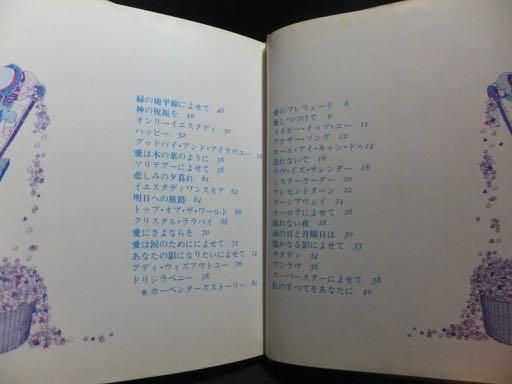 愛のプレリュード 6
愛しつづけて 9
メイビー・イッツ・ユー 11
アナザー・ソング 12
オール・アイ・キャン・ドゥ14
恐れないで 16
ラヴ・イズ・サレンダー 18
ミスターガーダー 20
クレセントヌーン 22
ターンアウェイ 24
オーロラによせて 26
眠れない夜 28
雨の日と月曜日は 30
遥かなる影によせて 33
サタディ
ワンラヴ 36
スーパースターによせて 38
私のすべてをあなたに 40
緑の地平線によせて 46
神の祝福を 49
オンリーイエスタディ 50
ハッピー 52
グッドバイ・アンド・アイラヴユー
愛は木の葉のように 56
ソリテアーによせて 58
悲しみの夕暮れ 61
イエスタディワンスモア 62
明日への旅路 64
トップ・オブ・ザ・ワールド 66
クリスタル・ララバイ 68
愛にさよならを 70
愛は涙のためにによせて 72
あなたの影になりたいによせて 74
アディ・ウィズアウトユー 76
ドリシラペニー 78
※カーペンターズストーリー 81